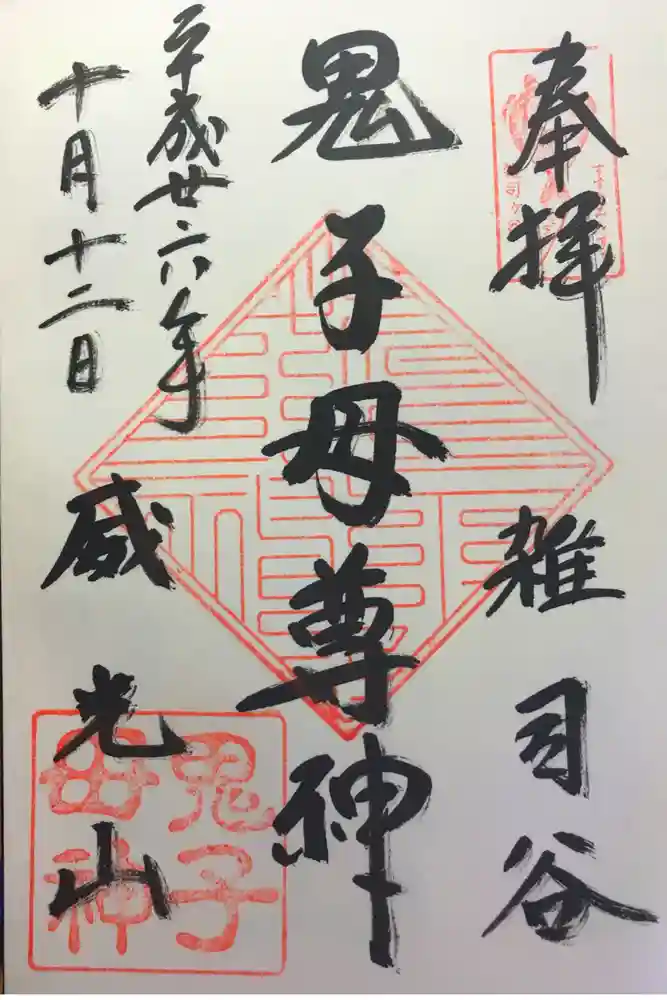 奉拝
雑司谷
鬼子母尊神
平成廿六年
十月十二日
威光山
鬼子
母神